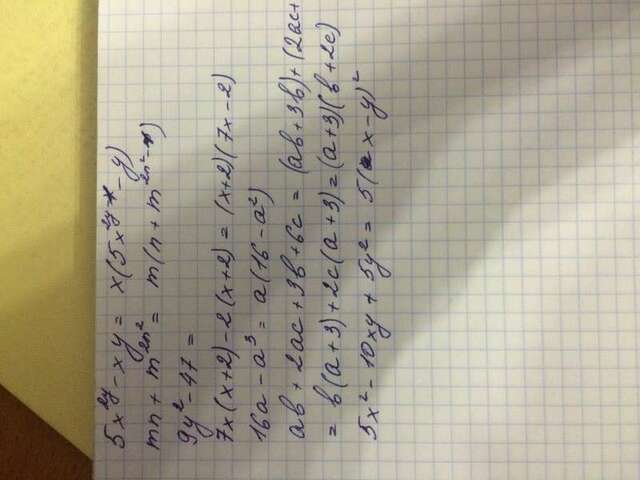 5x^{2y} - xy = x(5x^{2y} - y)
mn + m^{2n^2} = m(n + m^{2n^2})
9y² - 47 =
7x(x+2) - 2(x+2) = (x+2)(7x-2)
16a - a³ = a(16 - a²)
ab + 2ac + 3b + 6c = (ab + 3b) + (2ac+
= b(a+3) + 2c(a+3) = (a+3)(b+2c)
5x² - 10xy + 5y² = 5(x-y)²